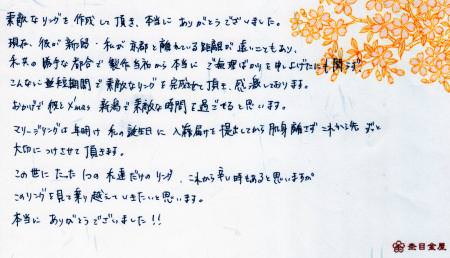 素敵なリングを作成して頂き、本当にありがとうございました。
現在、彼が新潟・私が京都と離れている距離が遠いこともあり、
私共の勝手な都合で製作当初から本当にご無理ばかりを申し上げたにも関らず
こんなに短期間で素敵なリングを完成されて頂き、感激しております。
おかげで彼とX'mas 新潟で素敵な時間を過ごせると思います。
マリッジリングは年明け私の誕生日に入籍届けを提出してから肌身離さずこれから先ずっと
大切につけさせて頂きます。
この世にたった1つの私達だけのリング、これから辛い時もあると思いますが
このリングを見て乗り越えていきたいと思います。
本当にありがとうございました!!
杢目金屋